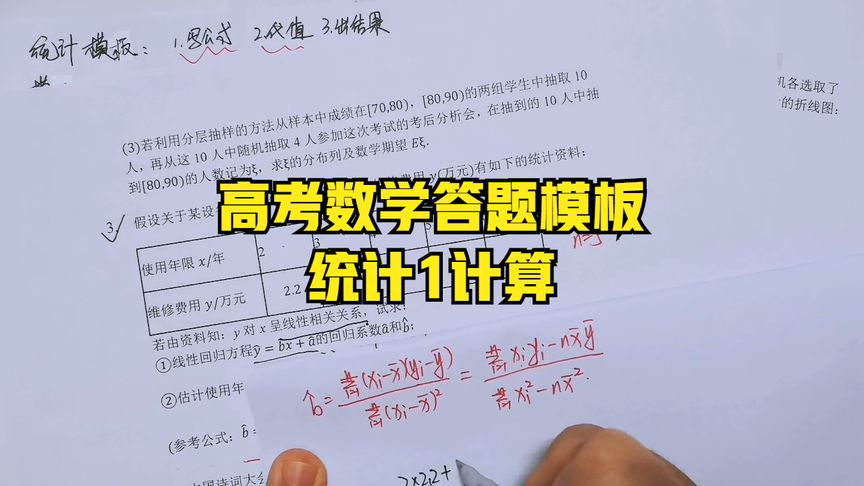 统计模板: 1.写公式 2.代值 3.出结果
机各选取了
的折线图:
(3)若利用分层抽样的方法从样本中成绩在[70,80),[80,90)的两组学生中抽取 10
人,再从这 10 人中随机抽取 4 人参加这次考试的考后分析会,在抽到的 10 人中抽
到[80,90)的人数记为ξ,求ξ的分布列及数学期望 Eξ.
3 假设关于某设 费用 y(万元)有如下的统计资料:
高考数学答题模板
统计1计算
使用年限 x/年 2 3
维修费用 y/万元 2.2
若由资料知: y 对 x 呈线性相关关系,试求:
①线性回归方程ŷ = b̂x + â的回归系数â和b̂;
②估计使用年
b̂ = Σ(xi-x̄)(yi-ȳ) / Σ(xi-x̄)² = Σxiyi-nx̄ȳ / Σxi²-nx̄².
(参考公式: b̂
2×2.2+
中国诗词大会